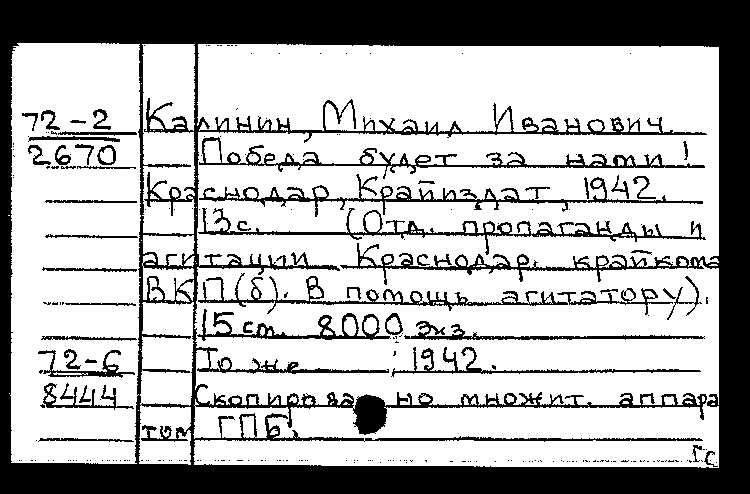 72-2 Калинин, Михаил Иванович.
2670 Победа будет за нами!
Краснодар, Крайиздат, 1942.
13с. (Отд. пропаганды и
агитации Краснодар. крайкома
ВКП(б). В помощь агитатору).
15 см. 8000 экз.
72-6 То же ; 1942.
8444 Скопировано множит. аппара
том ГПБ.
ГС